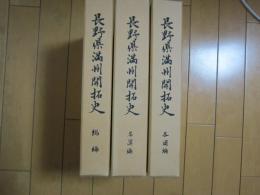 長野県満州開拓史
総編
長野県満州開拓史
名簿編
長野県満州開拓史
各団編